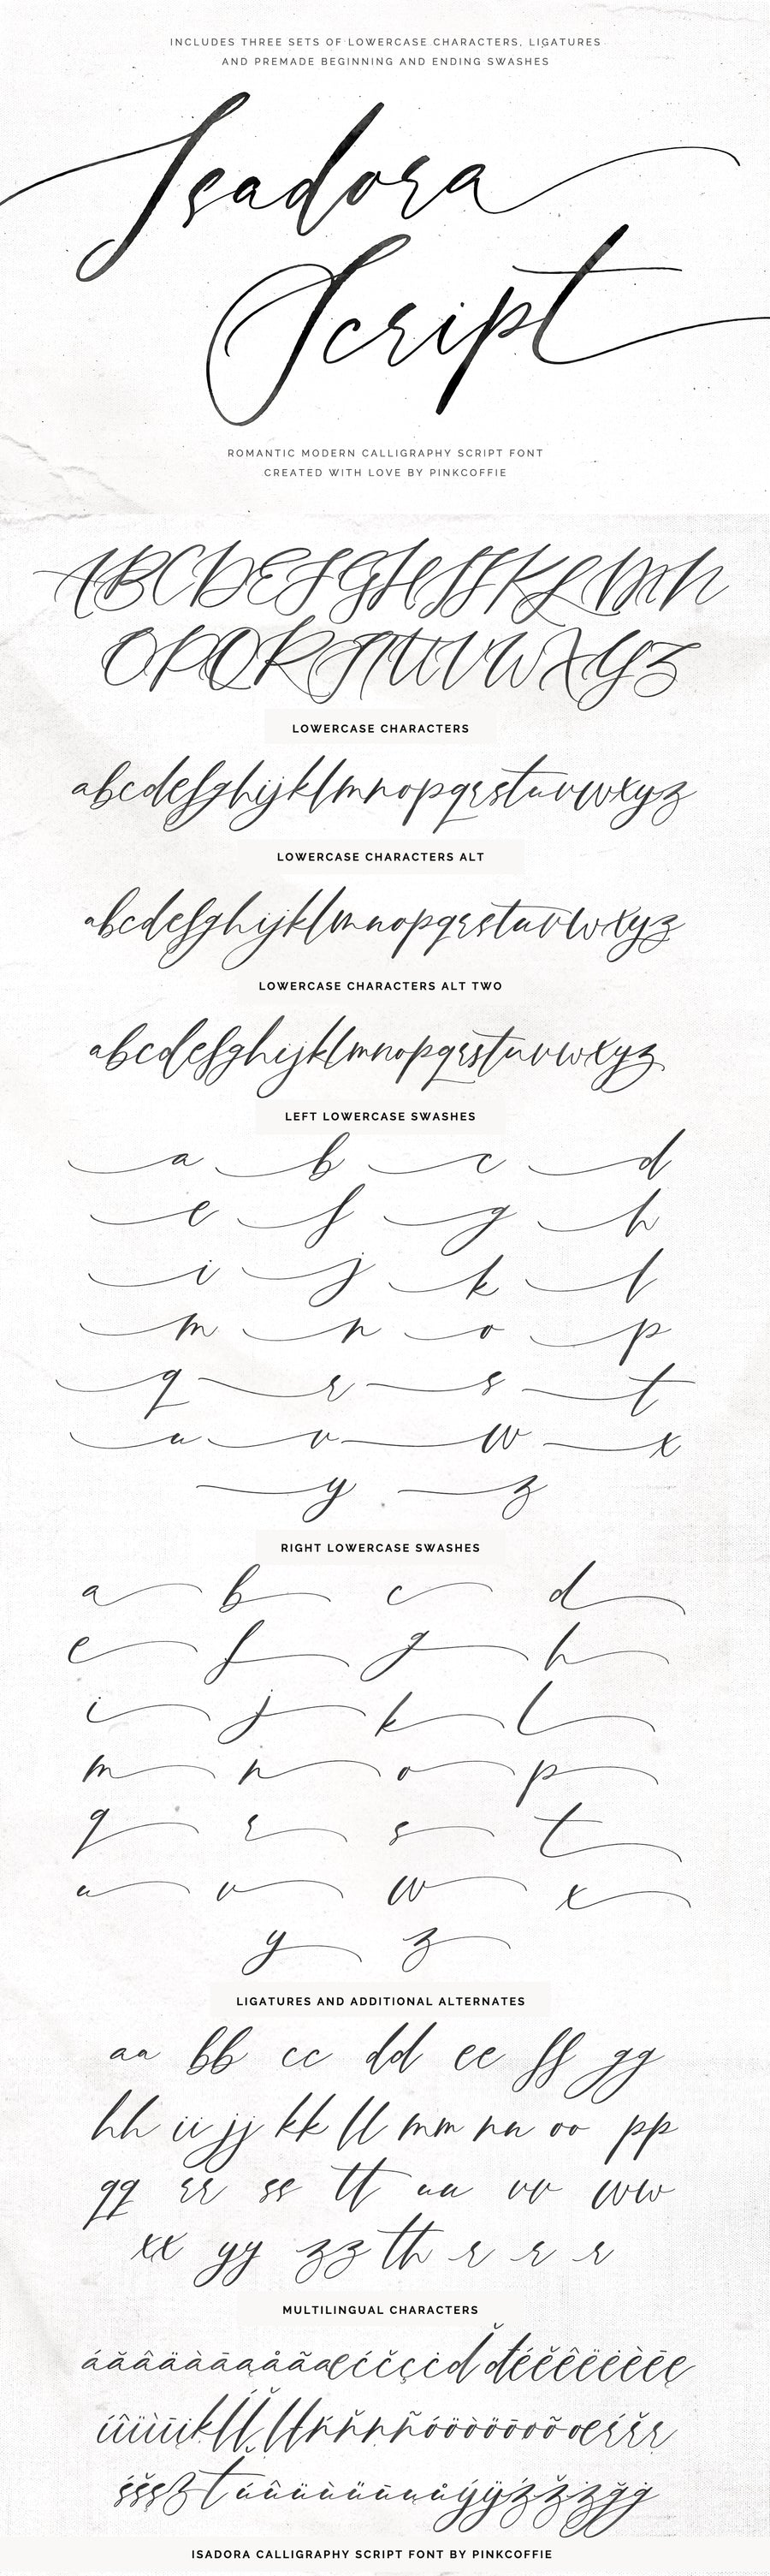 INCLUDES THREE SETS OF LOWERCASE CHARACTERS, LIGATURES
AND PREMADE BEGINNING AND ENDING SWASHES
Isadora
Script
ROMANTIC MODERN CALLIGRAPHY SCRIPT FONT
CREATED WITH LOVE BY PINKCOFFIE
ABCDEFGHIJKLMN
OPQRSTUVWXYZ
LOWERCASE CHARACTERS
abcdefghijklmnopqrstuvwxyz
LOWERCASE CHARACTERS ALT
abcdefghijklmnopqrstuvwxyz
LOWERCASE CHARACTERS ALT TWO
abcdefghijklmnopqrstuvwxyz
LEFT LOWERCASE SWASHES
a b c d
e f g h
i j k l
m n o p
q r s t
u v w x
y z
RIGHT LOWERCASE SWASHES
a b c d
e f g h
i j k l
m n o p
q r s t
u v w x
y z
LIGATURES AND ADDITIONAL ALTERNATES
aa bb cc dd ee ff gg
hh ii jj kk ll mm nn oo pp
qq rr ss tt uu vv ww
xx yy zz th r r r
MULTILINGUAL CHARACTERS
ISADORA CALLIGRAPHY SCRIPT FONT BY PINKCOFFIE